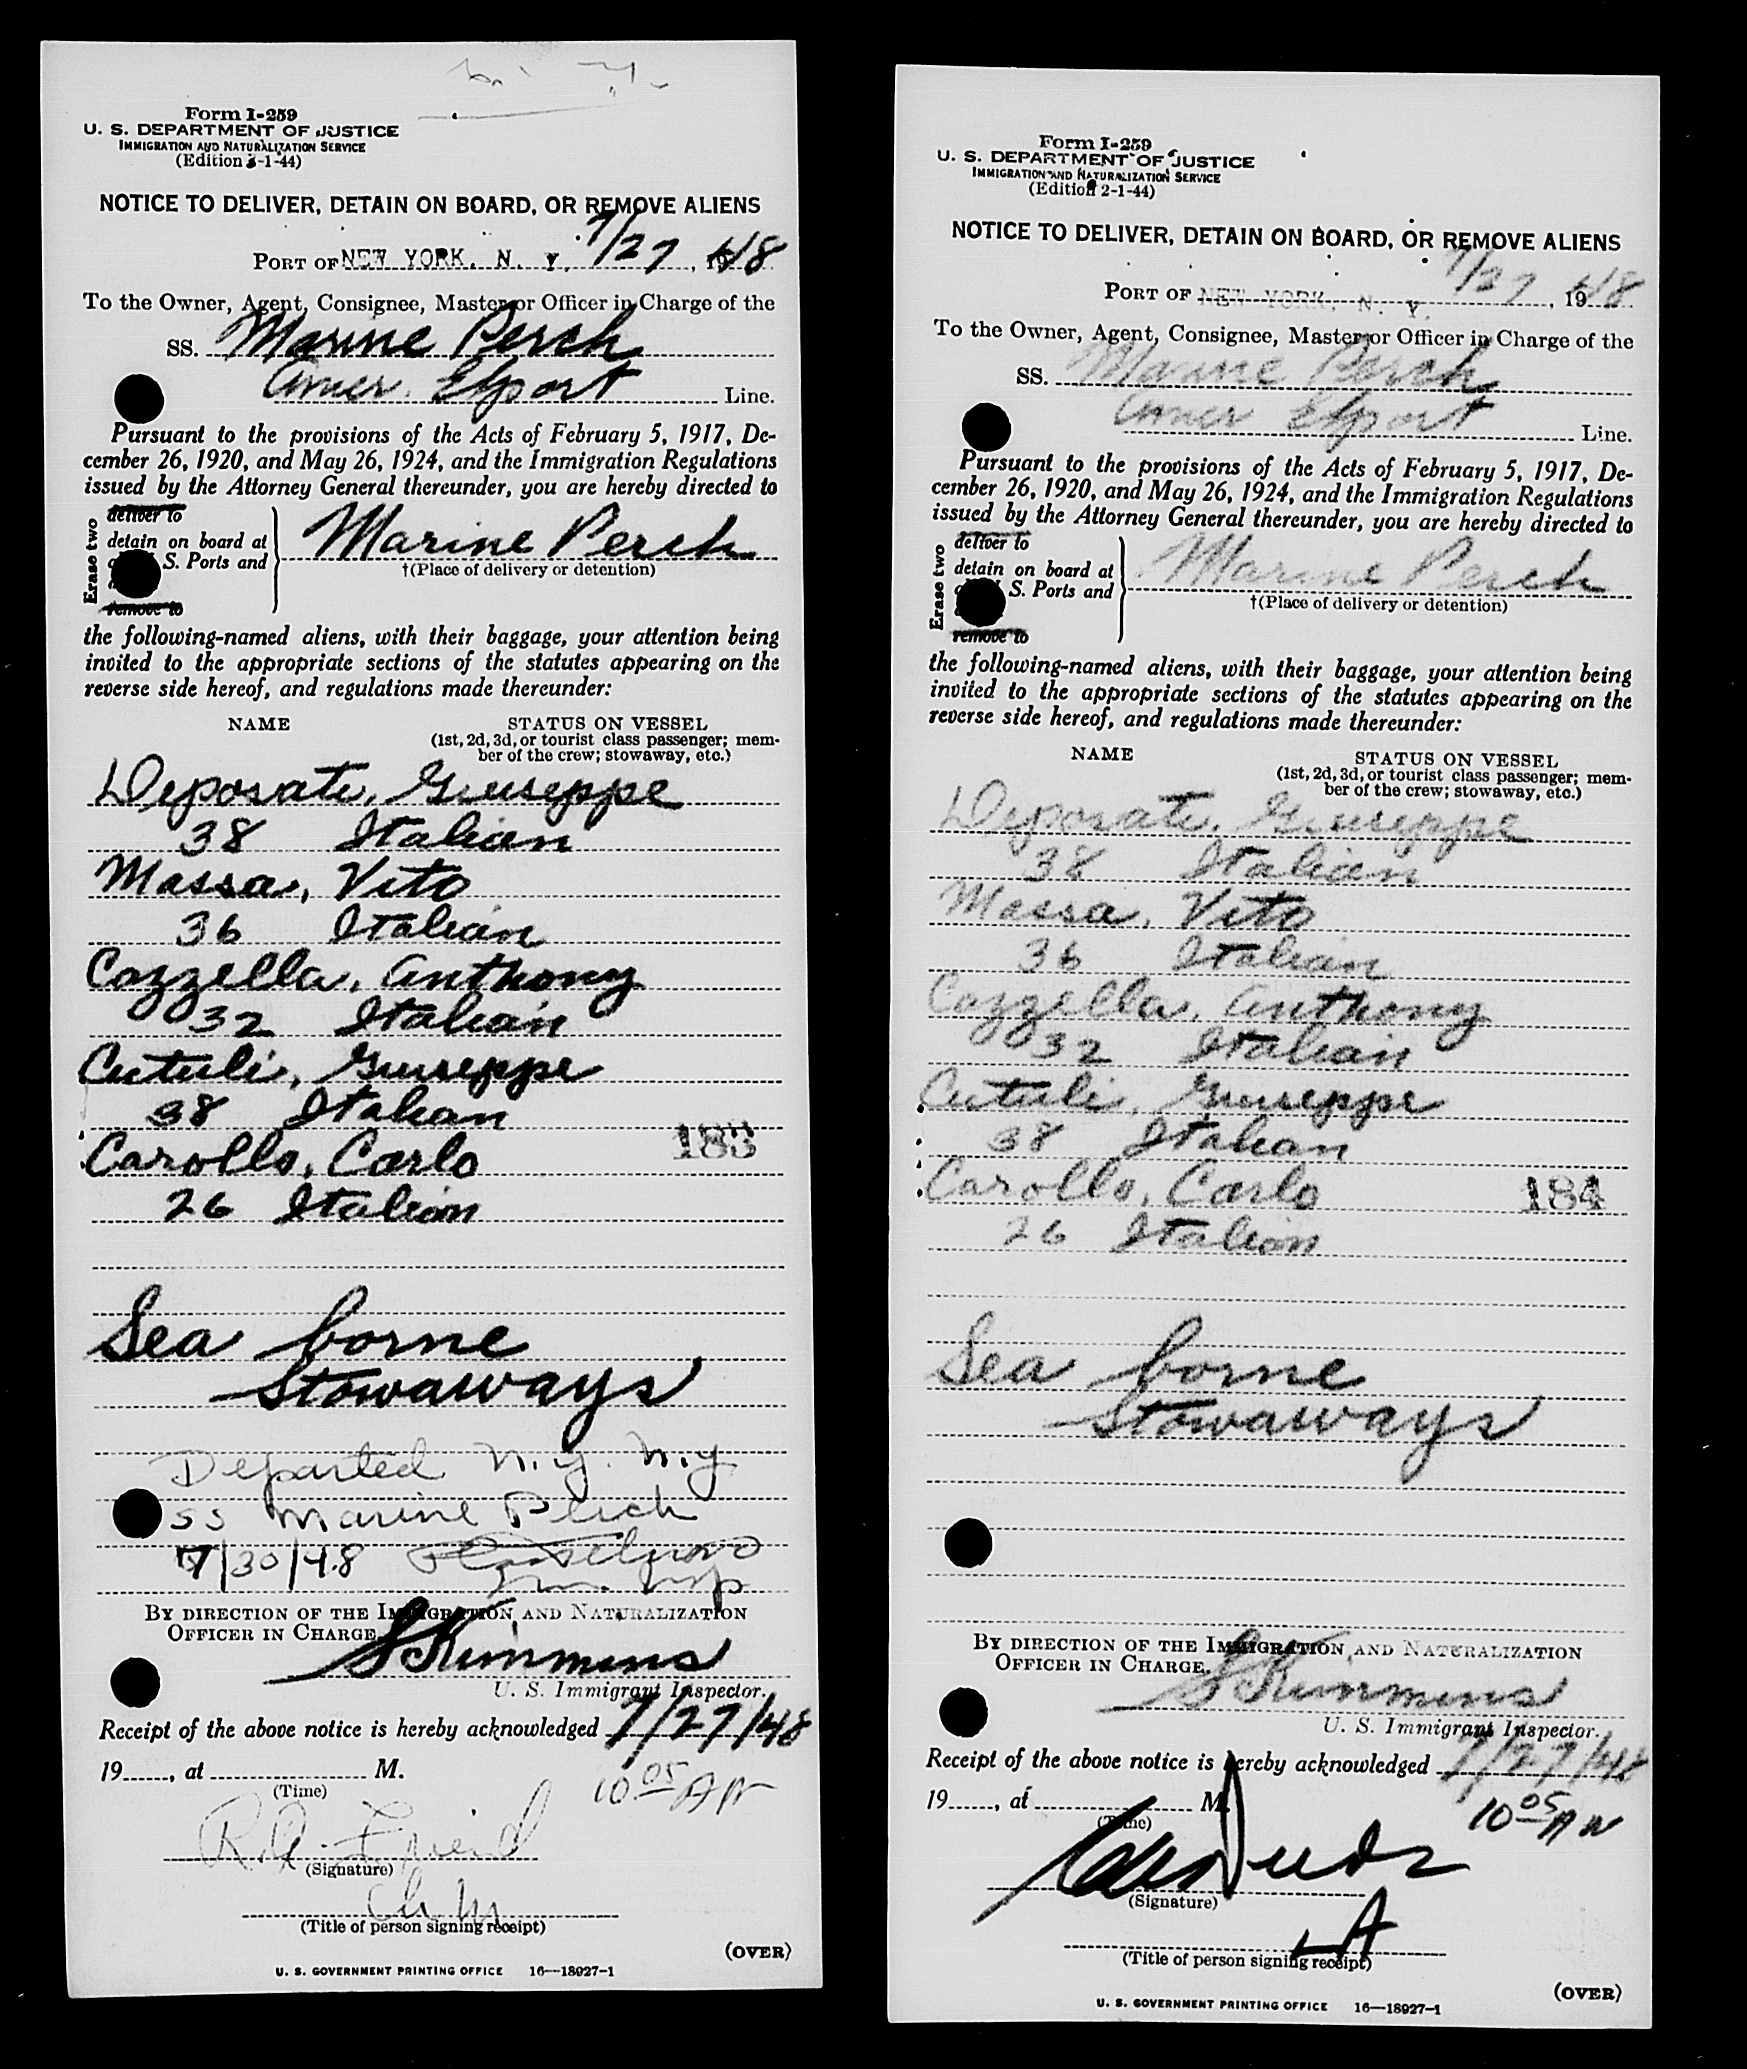 Form I-259
U. S. DEPARTMENT OF JUSTICE
IMMIGRATION AND NATURALIZATION SERVICE
(Edition 2-1-44)
NOTICE TO DELIVER, DETAIN ON BOARD, OR REMOVE ALIENS
PORT OF NEW YORK, N. Y. 7/27, 1948
To the Owner, Agent, Consignee, Master or Officer in Charge of the
SS. Marine Perch
Amer. Export Line.
Pursuant to the provisions of the Acts of February 5, 1917, De-
cember 26, 1920, and May 26, 1924, and the Immigration Regulations
issued by the Attorney General thereunder, you are hereby directed to
Erase two
deliver to
detain on board at
S. Ports and
remove to
Marine Perch
†(Place of delivery or detention)
the following-named aliens, with their baggage, your attention being
invited to the appropriate sections of the statutes appearing on the
reverse side hereof, and regulations made thereunder:
NAME STATUS ON VESSEL
(1st, 2d, 3d, or tourist class passenger; mem-
ber of the crew; stowaway, etc.)
Deposate, Giuseppe
38 Italian
Massa, Vito
36 Italian
Cozzella, Anthony
32 Italian
Cutuli, Giuseppe
38 Italian
Carollo, Carlo 183
26 Italian
Sea borne
Stowaways
Departed N.Y. N.Y
SS Marine Perch
7/30/48
BY DIRECTION OF THE IMMIGRATION AND NATURALIZATION
OFFICER IN CHARGE
S Kimmens
U. S. Immigrant Inspector.
Receipt of the above notice is hereby acknowledged 7/27/48
19, at M. 10 05 AM
(Time)
(Signature)
(Title of person signing receipt)
(OVER)
U. S. GOVERNMENT PRINTING OFFICE 16—18927-1
Form I-259
U. S. DEPARTMENT OF JUSTICE
IMMIGRATION AND NATURALIZATION SERVICE
(Edition 2-1-44)
NOTICE TO DELIVER, DETAIN ON BOARD, OR REMOVE ALIENS
PORT OF NEW YORK, N. Y. 7/27, 1948
To the Owner, Agent, Consignee, Master or Officer in Charge of the
SS. Marine Perch
Amer Export Line.
Pursuant to the provisions of the Acts of February 5, 1917, De-
cember 26, 1920, and May 26, 1924, and the Immigration Regulations
issued by the Attorney General thereunder, you are hereby directed to
Erase two
deliver to
detain on board at
S. Ports and
remove to
Marine Perch
†(Place of delivery or detention)
the following-named aliens, with their baggage, your attention being
invited to the appropriate sections of the statutes appearing on the
reverse side hereof, and regulations made thereunder:
NAME STATUS ON VESSEL
(1st, 2d, 3d, or tourist class passenger; mem-
ber of the crew; stowaway, etc.)
Deposate, Giuseppe
38 Italian
Massa, Vito
36 Italian
Cozzella, Anthony
32 Italian
Cutuli, Giuseppe
38 Italian
Carollo, Carlo 184
26 Italian
Sea borne
Stowaways
BY DIRECTION OF THE IMMIGRATION AND NATURALIZATION
OFFICER IN CHARGE.
S Kimmens
U. S. Immigrant Inspector.
Receipt of the above notice is hereby acknowledged 7/27/48
19, at M. 10 05 AM
(Time)
(Signature)
(Title of person signing receipt)
(OVER)
U. S. GOVERNMENT PRINTING OFFICE 16—18927-1